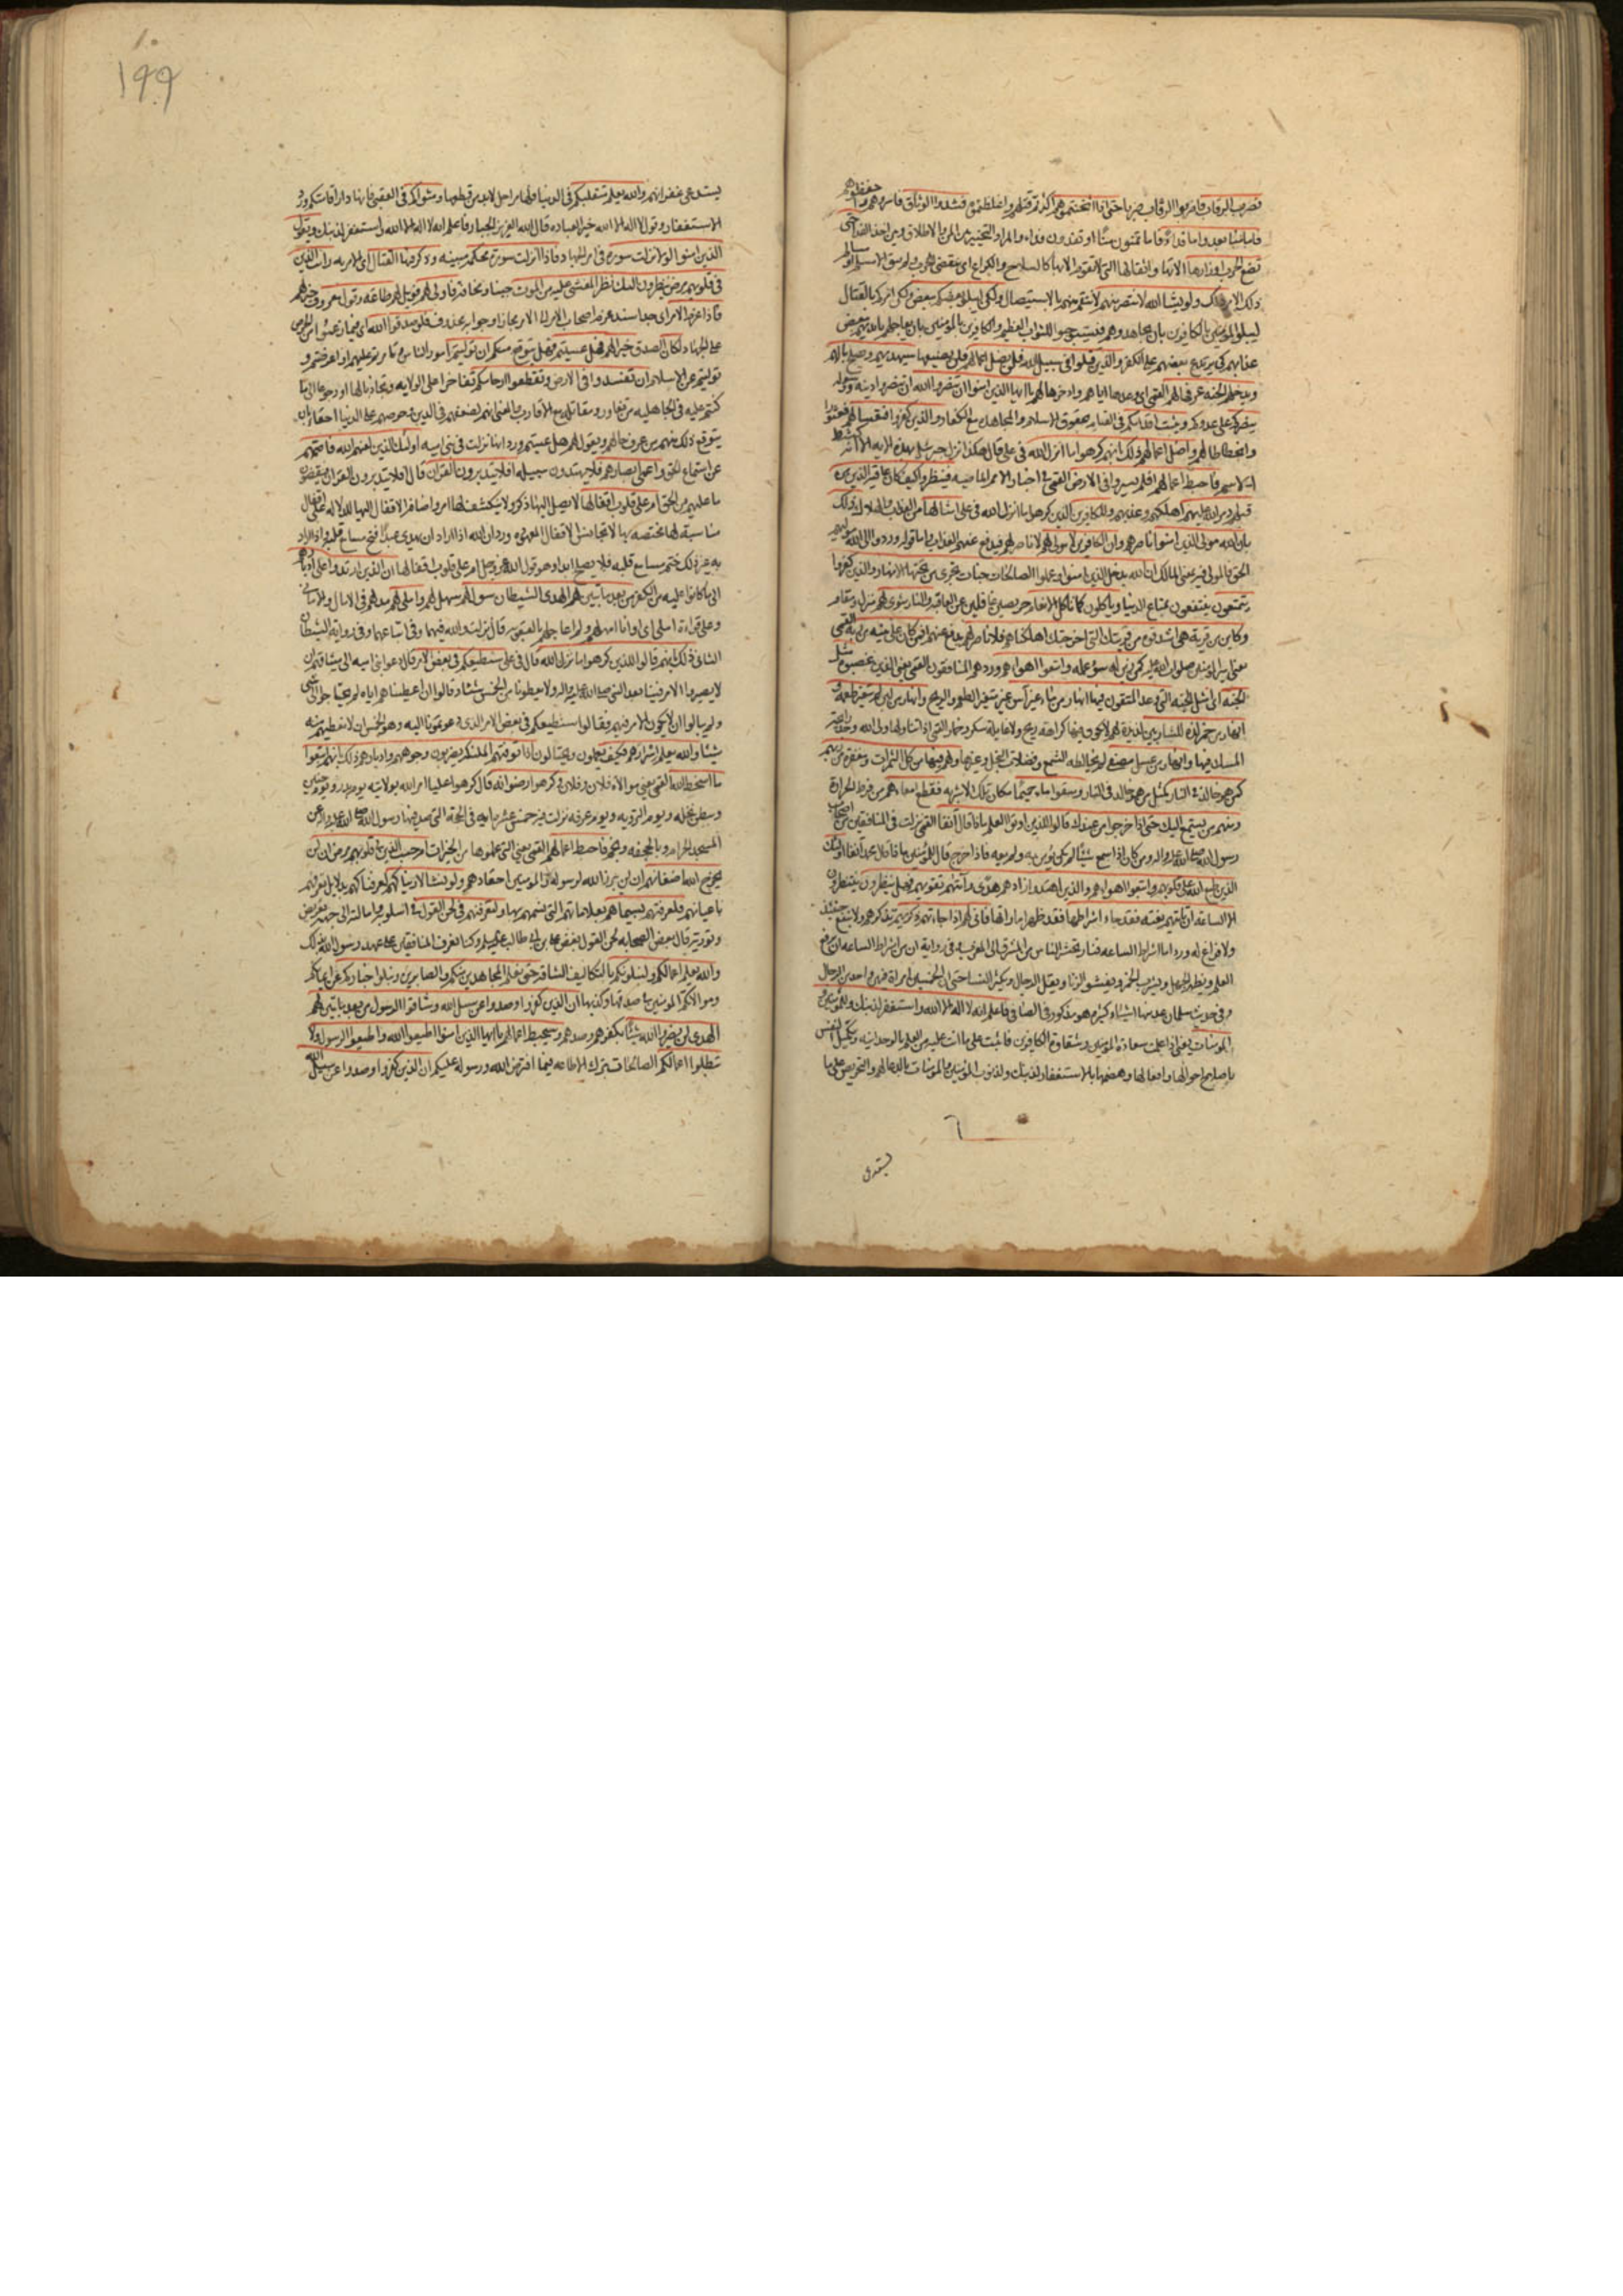 فضرب الرقاب فاضربوا الرقاب ضربا حتى اذا اثخنتموهم اكثرتم قتلهم واغلظتموه فشدوا الوثاق فاسروهم واحفظوهم
فاما منا بعد واما فداء فاما تمنون منا او تفدون فداء والمراد التخيير بين المن والاطلاق وبين اخذ الفداء حتى
تضع الحرب اوزارها آلاتها واثقالها التي لا تقوم الا بها كالسلاح والكراع اى ينقضى الحرب ولم يبق الا مسلم او مسالم
ذلك الامر ذلك ولو يشاء الله لانتصر منهم لانتقم منهم بالاستيصال ولكن ليبلو بعضكم ببعض ولكن امركم بالقتال
ليبلو المؤمنين بالكافرين بان يجاهدوهم فيستوجبوا الثواب العظيم والكافرين بالمؤمنين بان يعاجلهم بايديهم ببعض
عذابهم كى يرتدع بعضهم عن الكفر والذين قتلوا فى سبيل الله فلن يضل اعمالهم فلن يضيعها سيهديهم ويصلح بالهم
ويدخلهم الجنة عرفها لهم القمى اى وعدها اياهم وادخرها لهم يا ايها الذين امنوا ان تنصروا الله ان تنصروا دينه ورسوله
ينصركم على عدوكم ويثبت اقدامكم فى القيام بحقوق الاسلام والمجاهدة مع الكفار والذين كفروا فتعسا لهم فعثورا
وانحطاطا لهم واضل اعمالهم ذلك بانهم كرهوا ما انزل الله فى على قال هكذا نزل جبرئيل بهذه الاية الا انه كشط
الاسم فاحبط اعمالهم افلم يسيروا فى الارض القمى اى فى اخبار الامم الماضية فينظروا كيف كان عاقبة الذين من
قبلهم دمر الله عليهم اهلكهم وعذبهم وللكافرين الذين كرهوا ما انزل الله فى على امثالها من العذاب والهلاك ذلك
بان الله مولى الذين امنوا ناصرهم وان الكافرين لا مولى لهم لا ناصر لهم فيدفع عنهم العذاب واما قوله وردوا الى الله موليهم
الحق فالمولى فيه بمعنى المالك ان الله يدخل الذين امنوا وعملوا الصالحات جنات تجرى من تحتها الانهار والذين كفروا
يتمتعون ينتفعون بمتاع الدنيا وياكلون كما تاكل الانعام حريصين غافلين عن العاقبة والنار مثوى لهم منزل ومقام
وكاين من قرية هى اشد قوة من قريتك التى اخرجتك اهلكناهم فلا ناصر لهم يدفع عنهم افمن كان على بينة من ربه القمى
يعنى امير المؤمنين صلوات الله عليه كمن زين له سوء عمله واتبعوا اهواءهم ورد هم المنافقون القمى يعنى الذين غصبوه مثل
الجنة اى امثل الجنة التى وعد المتقون فيها انهار من ماء غير آسن غير متغير الطعم والريح وانهار من لبن لم يتغير طعمه و
انهار من خمر لذة للشاربين لذيذة لهم لا يكون فيها كراهة ريح ولا غايلة سكر وخمار القمى اذا تناولها ولى الله وجد رايحة
المسك فيها وانهار من عسل مصفى لم يخالطه الشمع وفضلات النحل وغيرها ولهم فيها من كل الثمرات ومغفرة من ربهم
كمن هو خالد فى النار كمثل من هو خالد فى النار وسقوا ماء حميما مكان تلك الاشربة فقطع امعاءهم من فرط الحرارة
ومنهم من يستمع اليك حتى اذا خرجوا من عندك قالوا للذين اوتوا العلم ماذا قال آنفا القمى نزلت فى المنافقين من اصحاب
رسول الله صلى الله عليه واله ومن كان اذا سمع شيئا لم يكن يؤمن به ولم يعه فاذا خرج قال للمؤمنين ماذا قال محمد آنفا اولئك
الذين طبع الله على قلوبهم واتبعوا اهواءهم والذين اهتدوا زادهم هدى وآتيهم تقويهم فهل ينظرون ينتظرون
الا الساعة ان تاتيهم بغتة فقد جاء اشراطها فقد ظهر اماراتها فانى لهم اذا جاءتهم ذكريهم تذكرهم ولا ينفع حينئذ
ولا فراغ له ورد اما اشراط الساعة فنار تحشر الناس من المشرق الى المغرب وفى رواية ان من اشراط الساعة ان يرفع
العلم ويظهر الجهل ويشرب الخمر ويفشو الزنا ويقل الرجال ويكثر النساء حتى ان الخمسين امراة فيهن واحد من الرجال
وفى حديث سلمان عد منها اشياء كثيرة هو مذكور فى الصافى فاعلم انه لا اله الا الله واستغفر لذنبك وللمؤمنين و
المؤمنات يعنى اذا علمت سعادة المؤمنين وشقاوة الكافرين فاثبت على ما انت عليه من العلم بالوحدانية وتكميل النفس
باصلاح احوالها وافعالها وهضمها بالاستغفار لذنبك ولذنوب المؤمنين والمؤمنات بالدعاء لهم والتحريص على ما
يستدعى
١٩٩
يستدعى غفرانهم والله يعلم متقلبكم فى الدنيا فانها مراحل لابد من قطعها ومثويكم فى العقبى فانها دار اقامتكم ورد
الاستغفار وقول لا اله الا الله خير العبادة قال الله العزيز الجبار فاعلم انه لا اله الا الله واستغفر لذنبك ويقول
الذين امنوا لولا نزلت سورة فى امر الجهاد فاذا انزلت سورة محكمة مبينة وذكر فيها القتال اى الامر به رايت الذين
فى قلوبهم مرض ينظرون اليك نظر المغشى عليه من الموت جبنا ومخافة فاولى لهم فويل لهم طاعة وقول معروف خير لهم
فاذا عزم الامر اى جد اسند عزم اصحاب الامر الى الامر مجازا وجوابه محذوف فلو صدقوا الله اى فيما زعموا من الحرص
على الجهاد لكان الصدق خيرا لهم فهل عسيتم فهل يتوقع منكم ان توليتم امور الناس وتامرتم عليهم او اعرضتم و
توليتم عن الاسلام ان تفسدوا فى الارض وتقطعوا ارحامكم تفاخرا على الولاية وتجاذبا لها او رجوعا الى ما
كنتم عليه فى الجاهلية من تغاور ومقاتلة مع الاقارب والمعنى انهم لضعفهم فى الدين وحرصهم على الدنيا احقاء بان
يتوقع ذلك منهم من عرف حالهم ويقول لهم هل عسيتم ورد انها نزلت فى بنى امية اولئك الذين لعنهم الله فاصمهم
عن استماع الحق واعمى ابصارهم فلا يهتدون سبيله افلا يتدبرون القرآن قال افلا يتدبرون القرآن فيقضون
ما عليهم من الحق ام على قلوب اقفالها لا يصل اليها ذكر ولا ينكشف لها امر واضافة الاقفال اليها للدلالة على اقفال
مناسبة لها مختصة بها لا تجانس الاقفال المعهودة ورد ان الله اذا اراد ان يهدى عبدا فتح مسامع قلبه واذا اراد
به غير ذلك ختم مسامع قلبه فلا يصلح ابدا وهو قول الله عز وجل ام على قلوب اقفالها ان الذين ارتدوا على ادبارهم
الى ما كانوا عليه من الكفر من بعد ما تبين لهم الهدى الشيطان سول لهم سهل لهم واملى لهم مد لهم فى الآمال والامانى
وعلى قراءة املى اى وانا امهلهم ولم اعاجلهم بالعقوبة قال نزلت والله فيهما وفى اتباعهما وفى رواية الشيطان
الثانى ذلك بانهم قالوا للذين كرهوا ما نزل الله قال فى على سنطيعكم فى بعض الامر قال دعوا بنى امية الى ميثاقهم ان
لا يصيروا الامر فينا بعد النبى صلى الله عليه واله ولا يعطونا من الخمس شيئا وقالوا ان اعطيناهم اياه لم يحتاجوا الى شئ
ولم يبالوا ان لا يكون الامر فيهم فقالوا سنطيعكم فى بعض الامر الذى دعوتمونا اليه وهو الخمس ان لا نعطيهم منه
شيئا والله يعلم اسرارهم فكيف يعملون ويحتالون اذا توفتهم الملئكة يضربون وجوههم وادبارهم ذلك بانهم اتبعوا
ما اسخط الله القمى يعنى موالاة فلان وفلان وكرهوا رضوانه قال كرهوا عليا امر الله بولايته يوم بدر ويوم حنين
وببطن نخلة ويوم التروية ويوم عرفة نزلت فيه خمس عشرة اية فى الحجة التى صد فيها رسول الله صلى الله عليه واله عن
المسجد الحرام وبالجحفة وبخم فاحبط اعمالهم القمى يعنى التى عملوها من الخيرات ام حسب الذين فى قلوبهم مرض ان لن
يخرج الله اضغانهم ان لن يبرز الله لرسوله والمؤمنين احقادهم ولو نشاء لاريناكهم لعرفناكهم بدلايل تعرفهم
باعيانهم فلعرفتهم بسيماهم بعلاماتهم التى نسمهم بها ولتعرفنهم فى لحن القول فى اسلوبه وامالته الى جهة تعريض
وتورية قال بعض الصحابة لحن القول بغض على بن ابى طالب عليه السلام وكنا نعرف المنافقين على عهد رسول الله بذلك
والله يعلم اعمالكم ولنبلونكم بالتكاليف الشاقة حتى نعلم المجاهدين منكم والصابرين ونبلو اخباركم عن ايمانكم
وموالاتكم المؤمنين فى صدقها وكذبها ان الذين كفروا وصدوا عن سبيل الله وشاقوا الرسول من بعد ما تبين لهم
الهدى لن يضروا الله شيئا بكفرهم وصدهم وسيحبط اعمالهم يا ايها الذين امنوا اطيعوا الله واطيعوا الرسول ولا
تبطلوا اعمالكم الصالحات بترك الاطاعة فيما افترض الله ورسوله عليكم ان الذين كفروا وصدوا عن سبيل الله